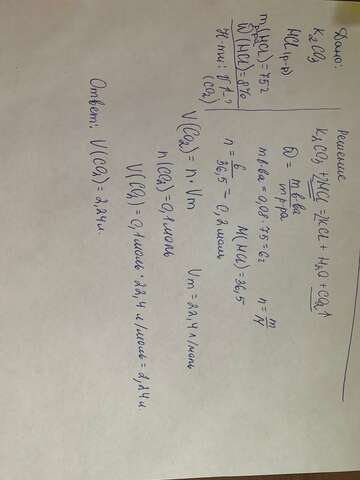 Дано:
K₂CO₃
HCl (р-р)
m(HCl)=75г
р-ра
ω(HCl)=8%
Н. т.и: V-?
(CO₂)
Решение
K₂CO₃ + 2HCl = 2KCl + H₂O + CO₂↑
ω = m в-ва / m р-ра
m в-ва = 0,08 · 75 = 6г n = m/M
n = 6/36,5 = 0,2 моль M(HCl) = 36,5
V(CO₂) = n · Vm Vm = 22,4 л/моль
n(CO₂) = 0,1 моль
V(CO₂) = 0,1 моль · 22,4 л/моль = 2,24 л
Ответ: V(CO₂) = 2,24 л.